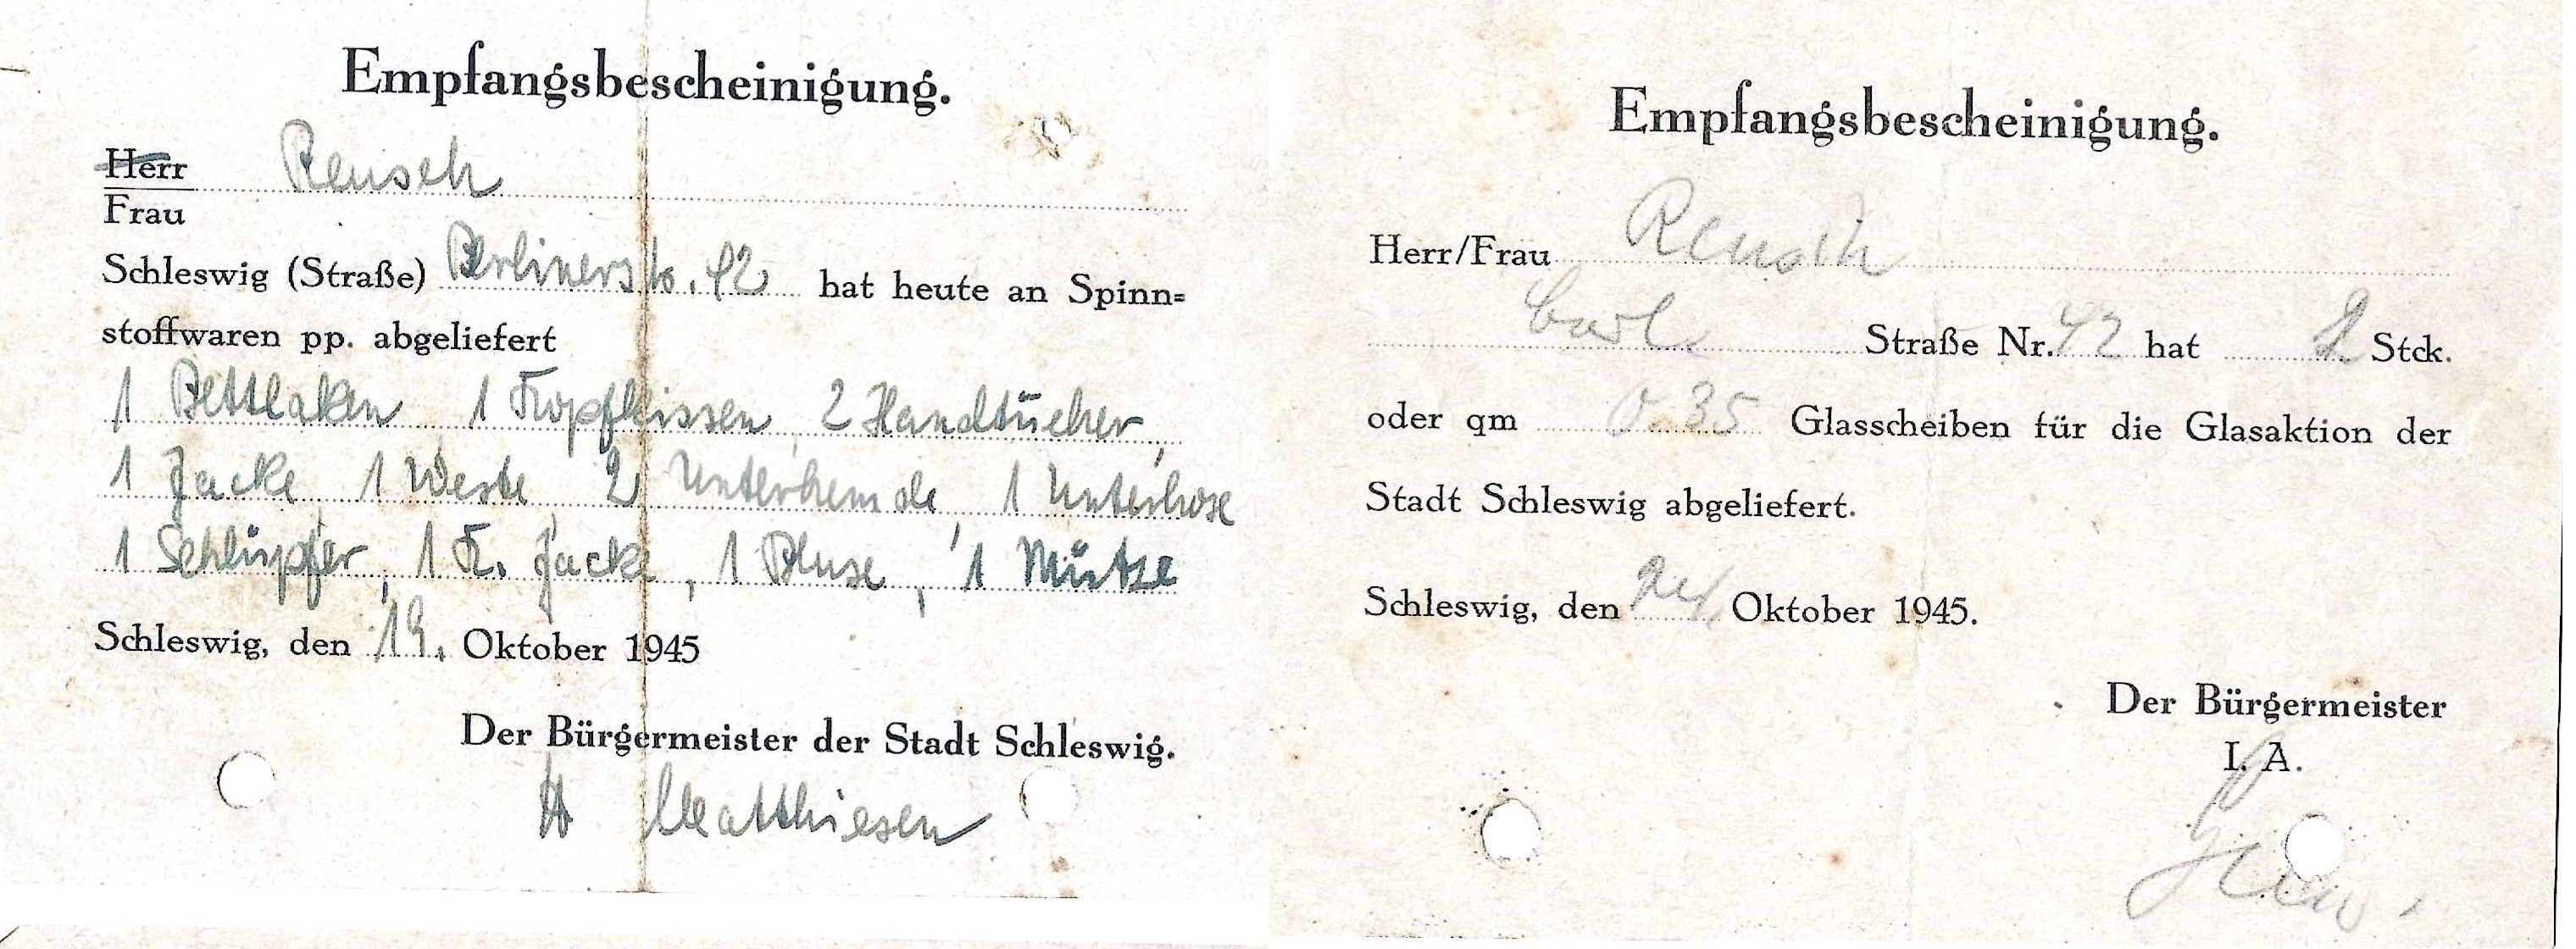 Empfangsbescheinigung.
Herr Reusch
Frau
Schleswig (Straße) Berlinerstr. 42 hat heute an Spinn=
stoffwaren pp. abgeliefert
1 Bettlaken, 1 Kopfkissen, 2 Handtücher,
1 Jacke, 1 Weste, 2 Unterhemde, 1 Unterhose
1 Schlüpfer, 1 K. Jacke, 1 Bluse, 1 Mütze
Schleswig, den 19. Oktober 1945
Der Bürgermeister der Stadt Schleswig.
H Matthiesen
Empfangsbescheinigung.
Herr/Frau Reusch
Straße Nr. 42 hat Stck.
oder qm 0.35 Glasscheiben für die Glasaktion der
Stadt Schleswig abgeliefert.
Schleswig, den Oktober 1945.
Der Bürgermeister
I. A.